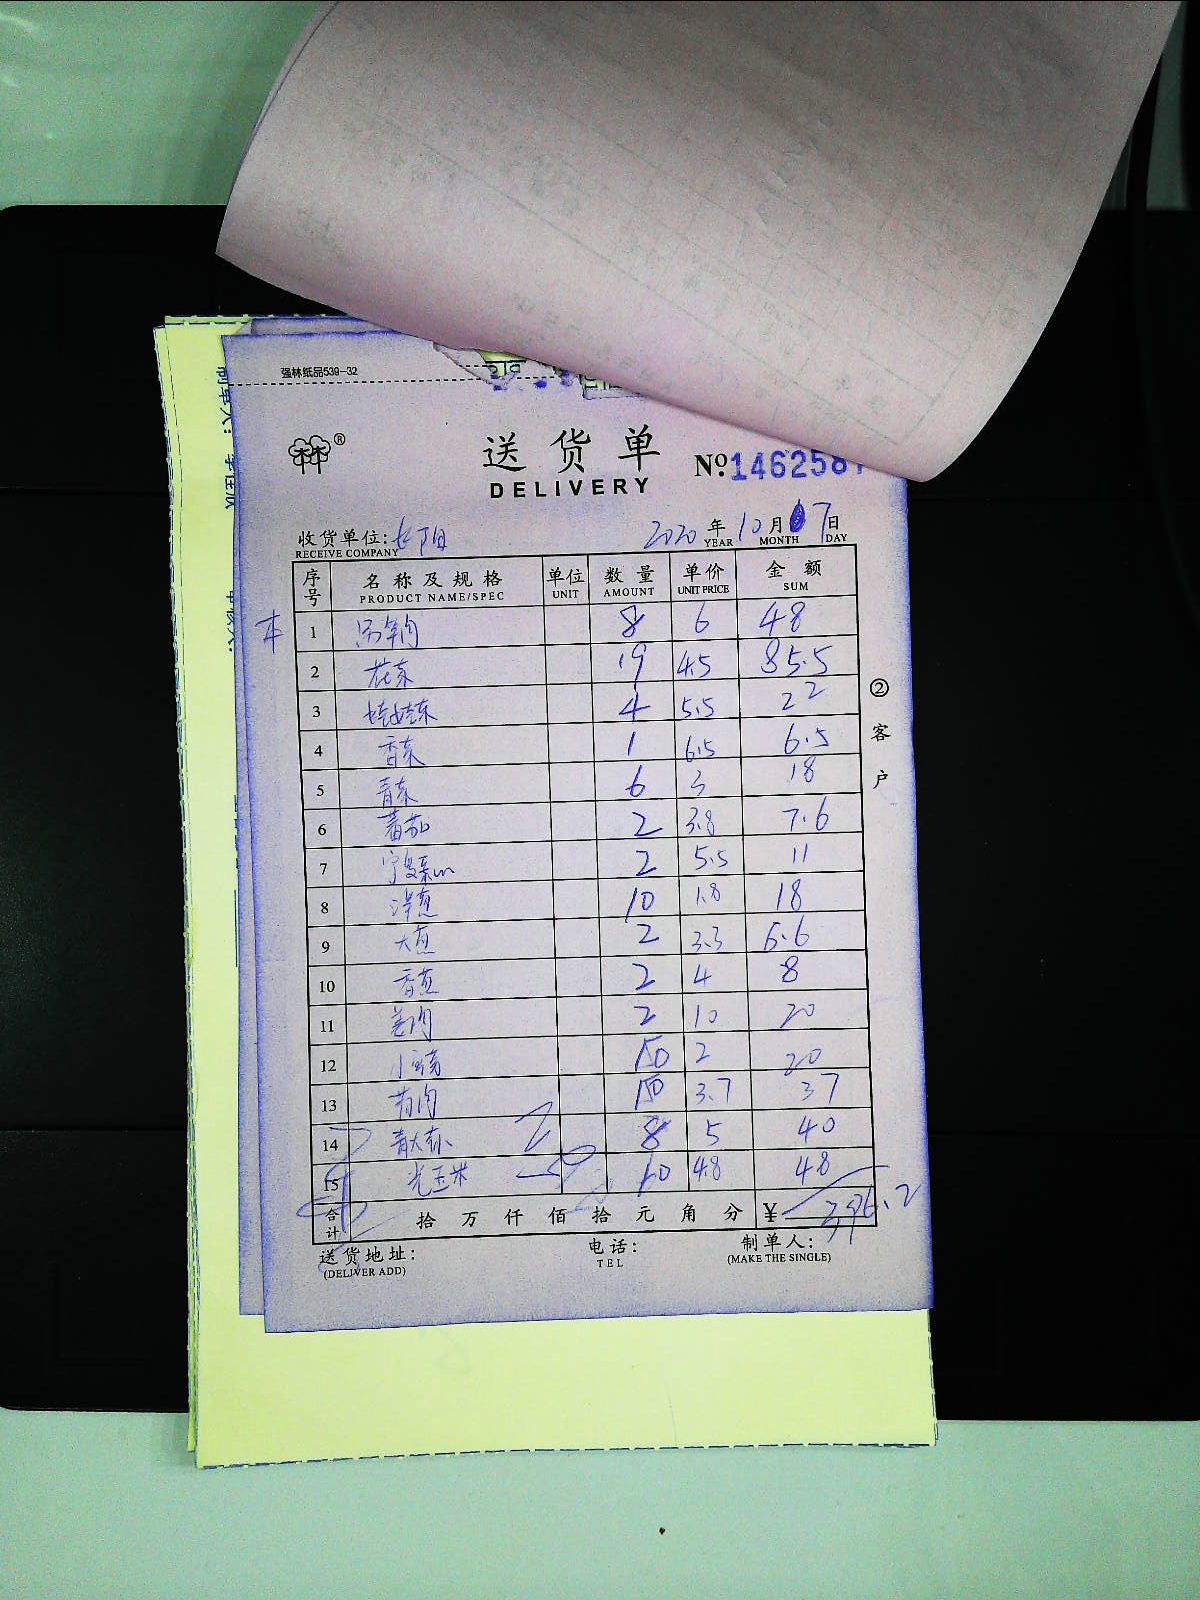 强林纸品539-32
林®
送货单
№146258
DELIVERY
收货单位: 2020年10月7日
RECEIVE COMPANY YEAR MONTH DAY
序号 名称及规格 单位 数量 单价 金额
PRODUCT NAME/SPEC UNIT AMOUNT UNIT PRICE SUM
1 8 6 48
2 花菜 19 4.5 85.5
3 娃娃菜 4 5.5 22
4 香菜 1 6.5 6.5
5 青菜 6 3 18
6 蕃茄 2 3.8 7.6
7 2 5.5 11
8 洋葱 10 1.8 18
9 大葱 2 3.3 6.6
10 香葱 2 4 8
11 2 10 20
12 10 2 20
13 10 3.7 37
14 8 5 40
15 光玉米 10 4.8 48
合计 拾万仟佰拾元角分 ¥ 396.2
② 客户
送货地址: 电话: 制单人:
(DELIVER ADD) TEL (MAKE THE SINGLE)